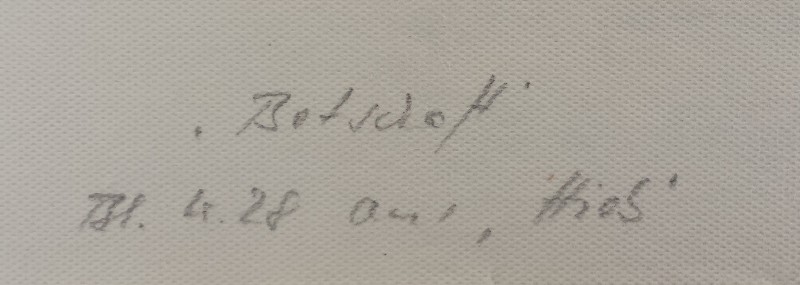 ‚Botschaft'
Bl. 4.28 aus ‚Hiob'